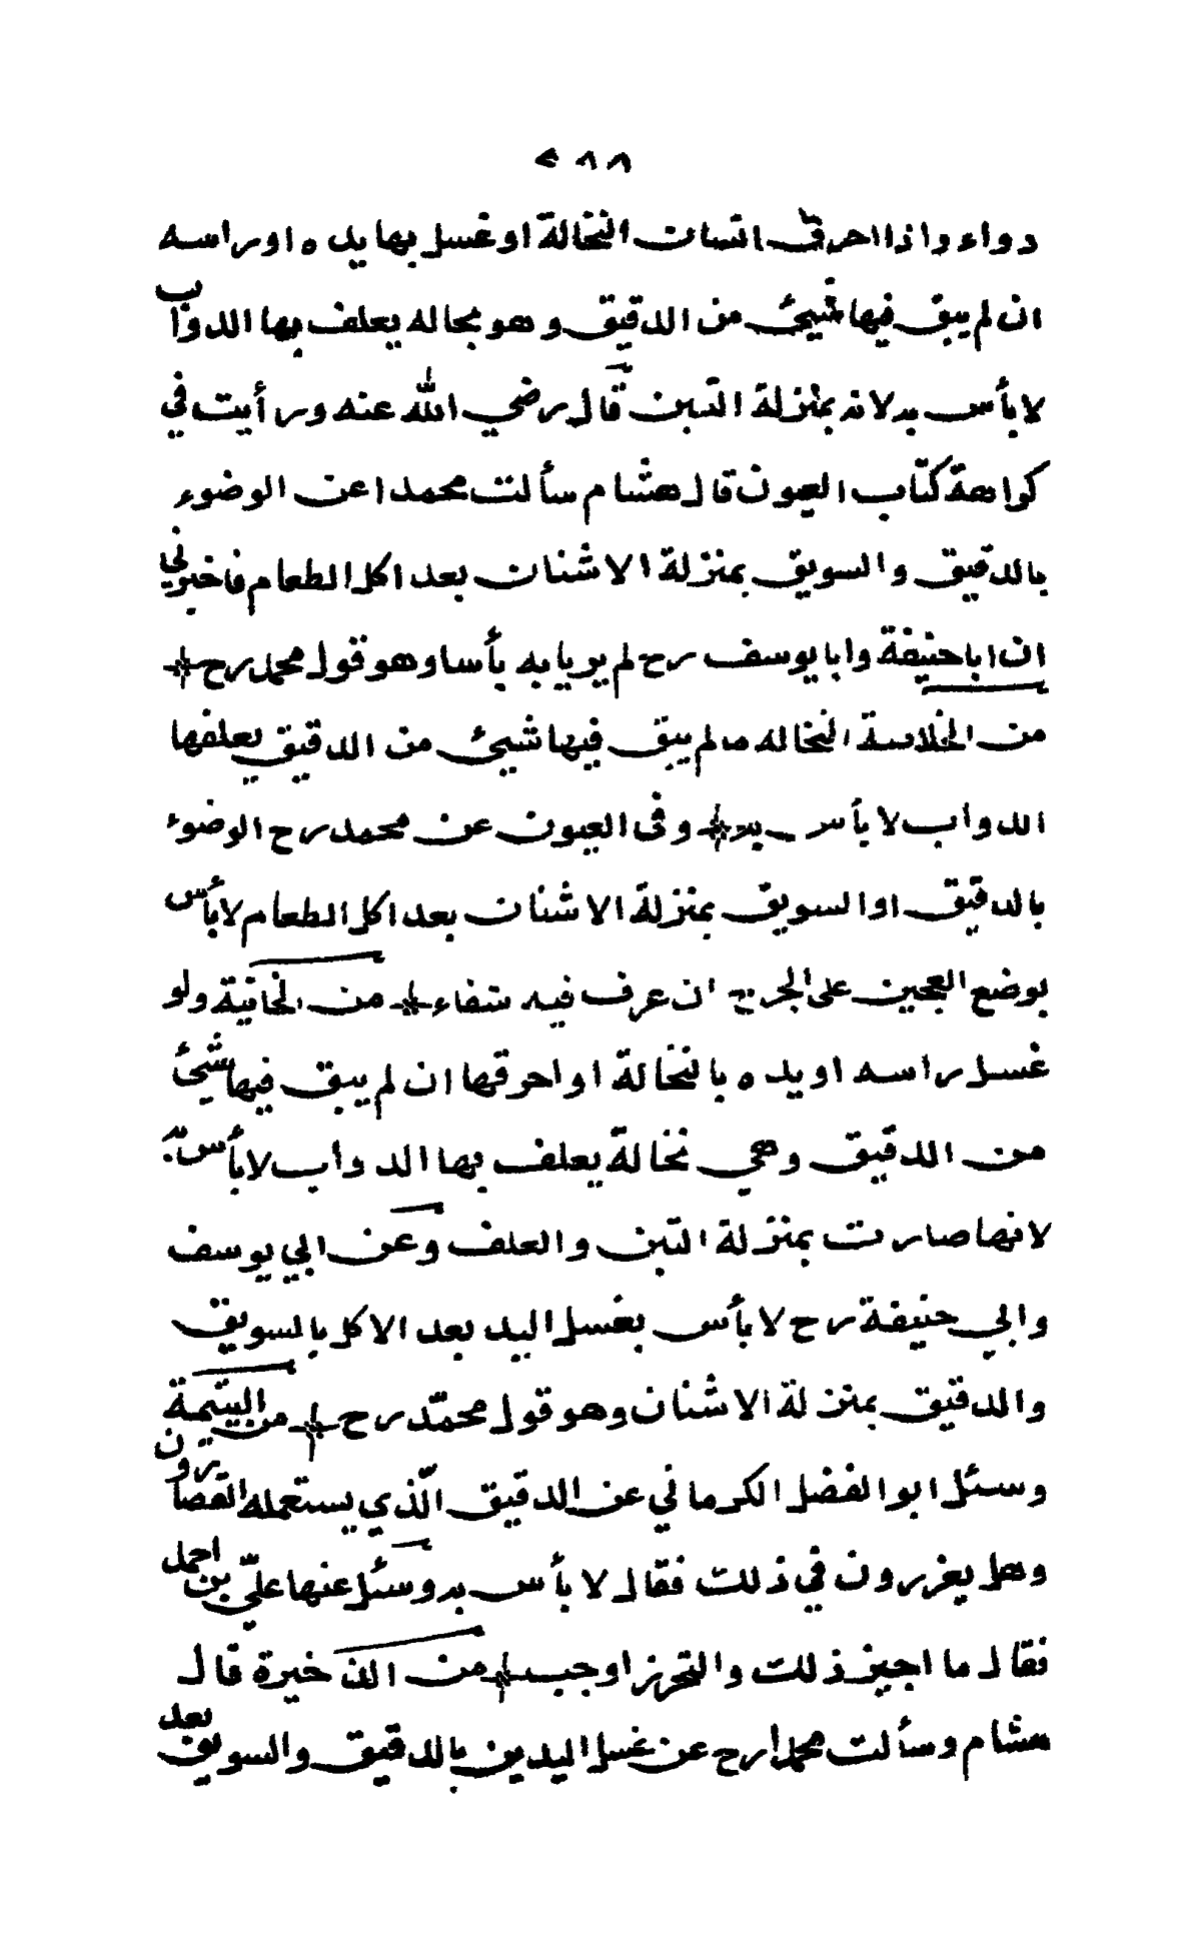 ٢٨٨
دواء واذا احرق انسان النخالة او غسل بها يده او راسه
ان لم يبق فيها شيئ من الدقيق وهو بحاله يعلف بها الدواب
لا بأس به لانه بمنزلة التبن قال رضي الله عنه ورأيت في
كراهة كتاب العيون قال هشام سألت محمدا عن الوضوء
بالدقيق والسويق بمنزلة الاشنان بعد اكل الطعام فاخبرني
ان ابا حنيفة وابا يوسف رح لم يريا به بأسا وهو قول محمد رح
من الخلاصة النخاله ما لم يبق فيها شيئ من الدقيق يعلفها
الدواب لا بأس به وفى العيون عن محمد رح الوضوء
بالدقيق او السويق بمنزلة الاشنان بعد اكل الطعام لا بأس
بوضع العجين على الجرح ان عرف فيه شفاء من الخانية ولو
غسل راسه او يده بالنخالة او احرقها ان لم يبق فيها شيئ
من الدقيق وهي نخالة يعلف بها الدواب لا بأس به
لانها صارت بمنزلة التبن والعلف وعن ابي يوسف
وابي حنيفة رح لا بأس بغسل اليد بعد الاكل بالسويق
والدقيق بمنزلة الاشنان وهو قول محمّد رح من اليتيمة
وسئل ابو الفضل الكرماني عن الدقيق الّذي يستعمله القصارون
وهل يعزرون في ذلك فقال لا بأس به وسئل عنها عليّ بن احمد
فقال ما اجيز ذلك والتحرز اوجب من الذخيرة قال
هشام وسألت محمدا رح عن غسل اليدين بالدقيق والسويق بعد